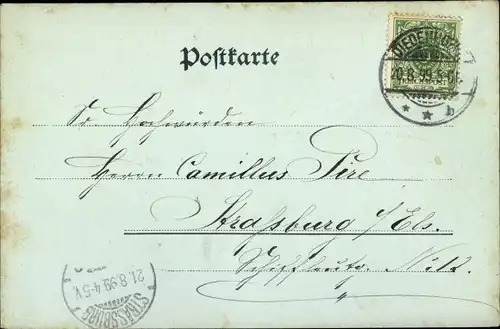 Postkarte
DIEDENHOFEN
20.8.99.8-9V.
* * b
Sr. Hochwürden
Herrn Camillus Pire
Straßburg i/Els.
Schiffleutg. No 12.
STRASSBURG
21.8.99.4-5V.